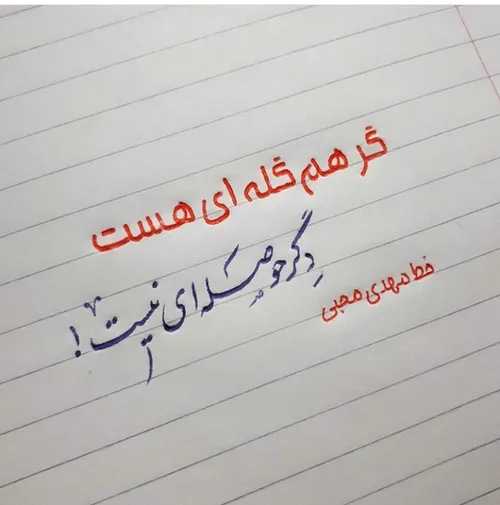 گر هم گله ای هست
دگر حوصله ای نیست!
خط مهدی محبی